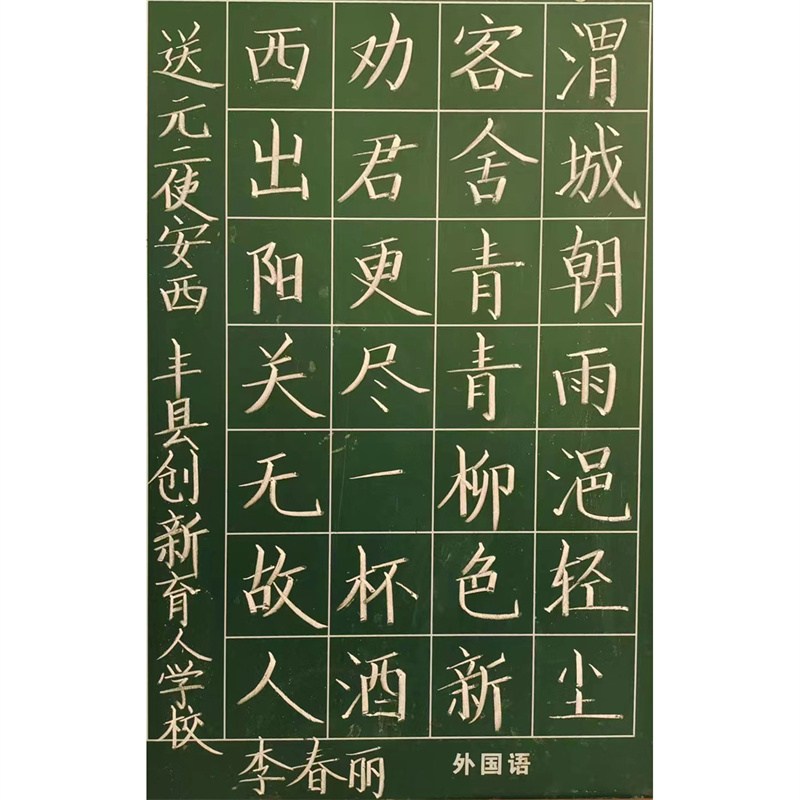 渭城朝雨浥轻尘
客舍青青柳色新
劝君更尽一杯酒
西出阳关无故人
送元二使安西 丰县创新育人学校
李春丽
外国语